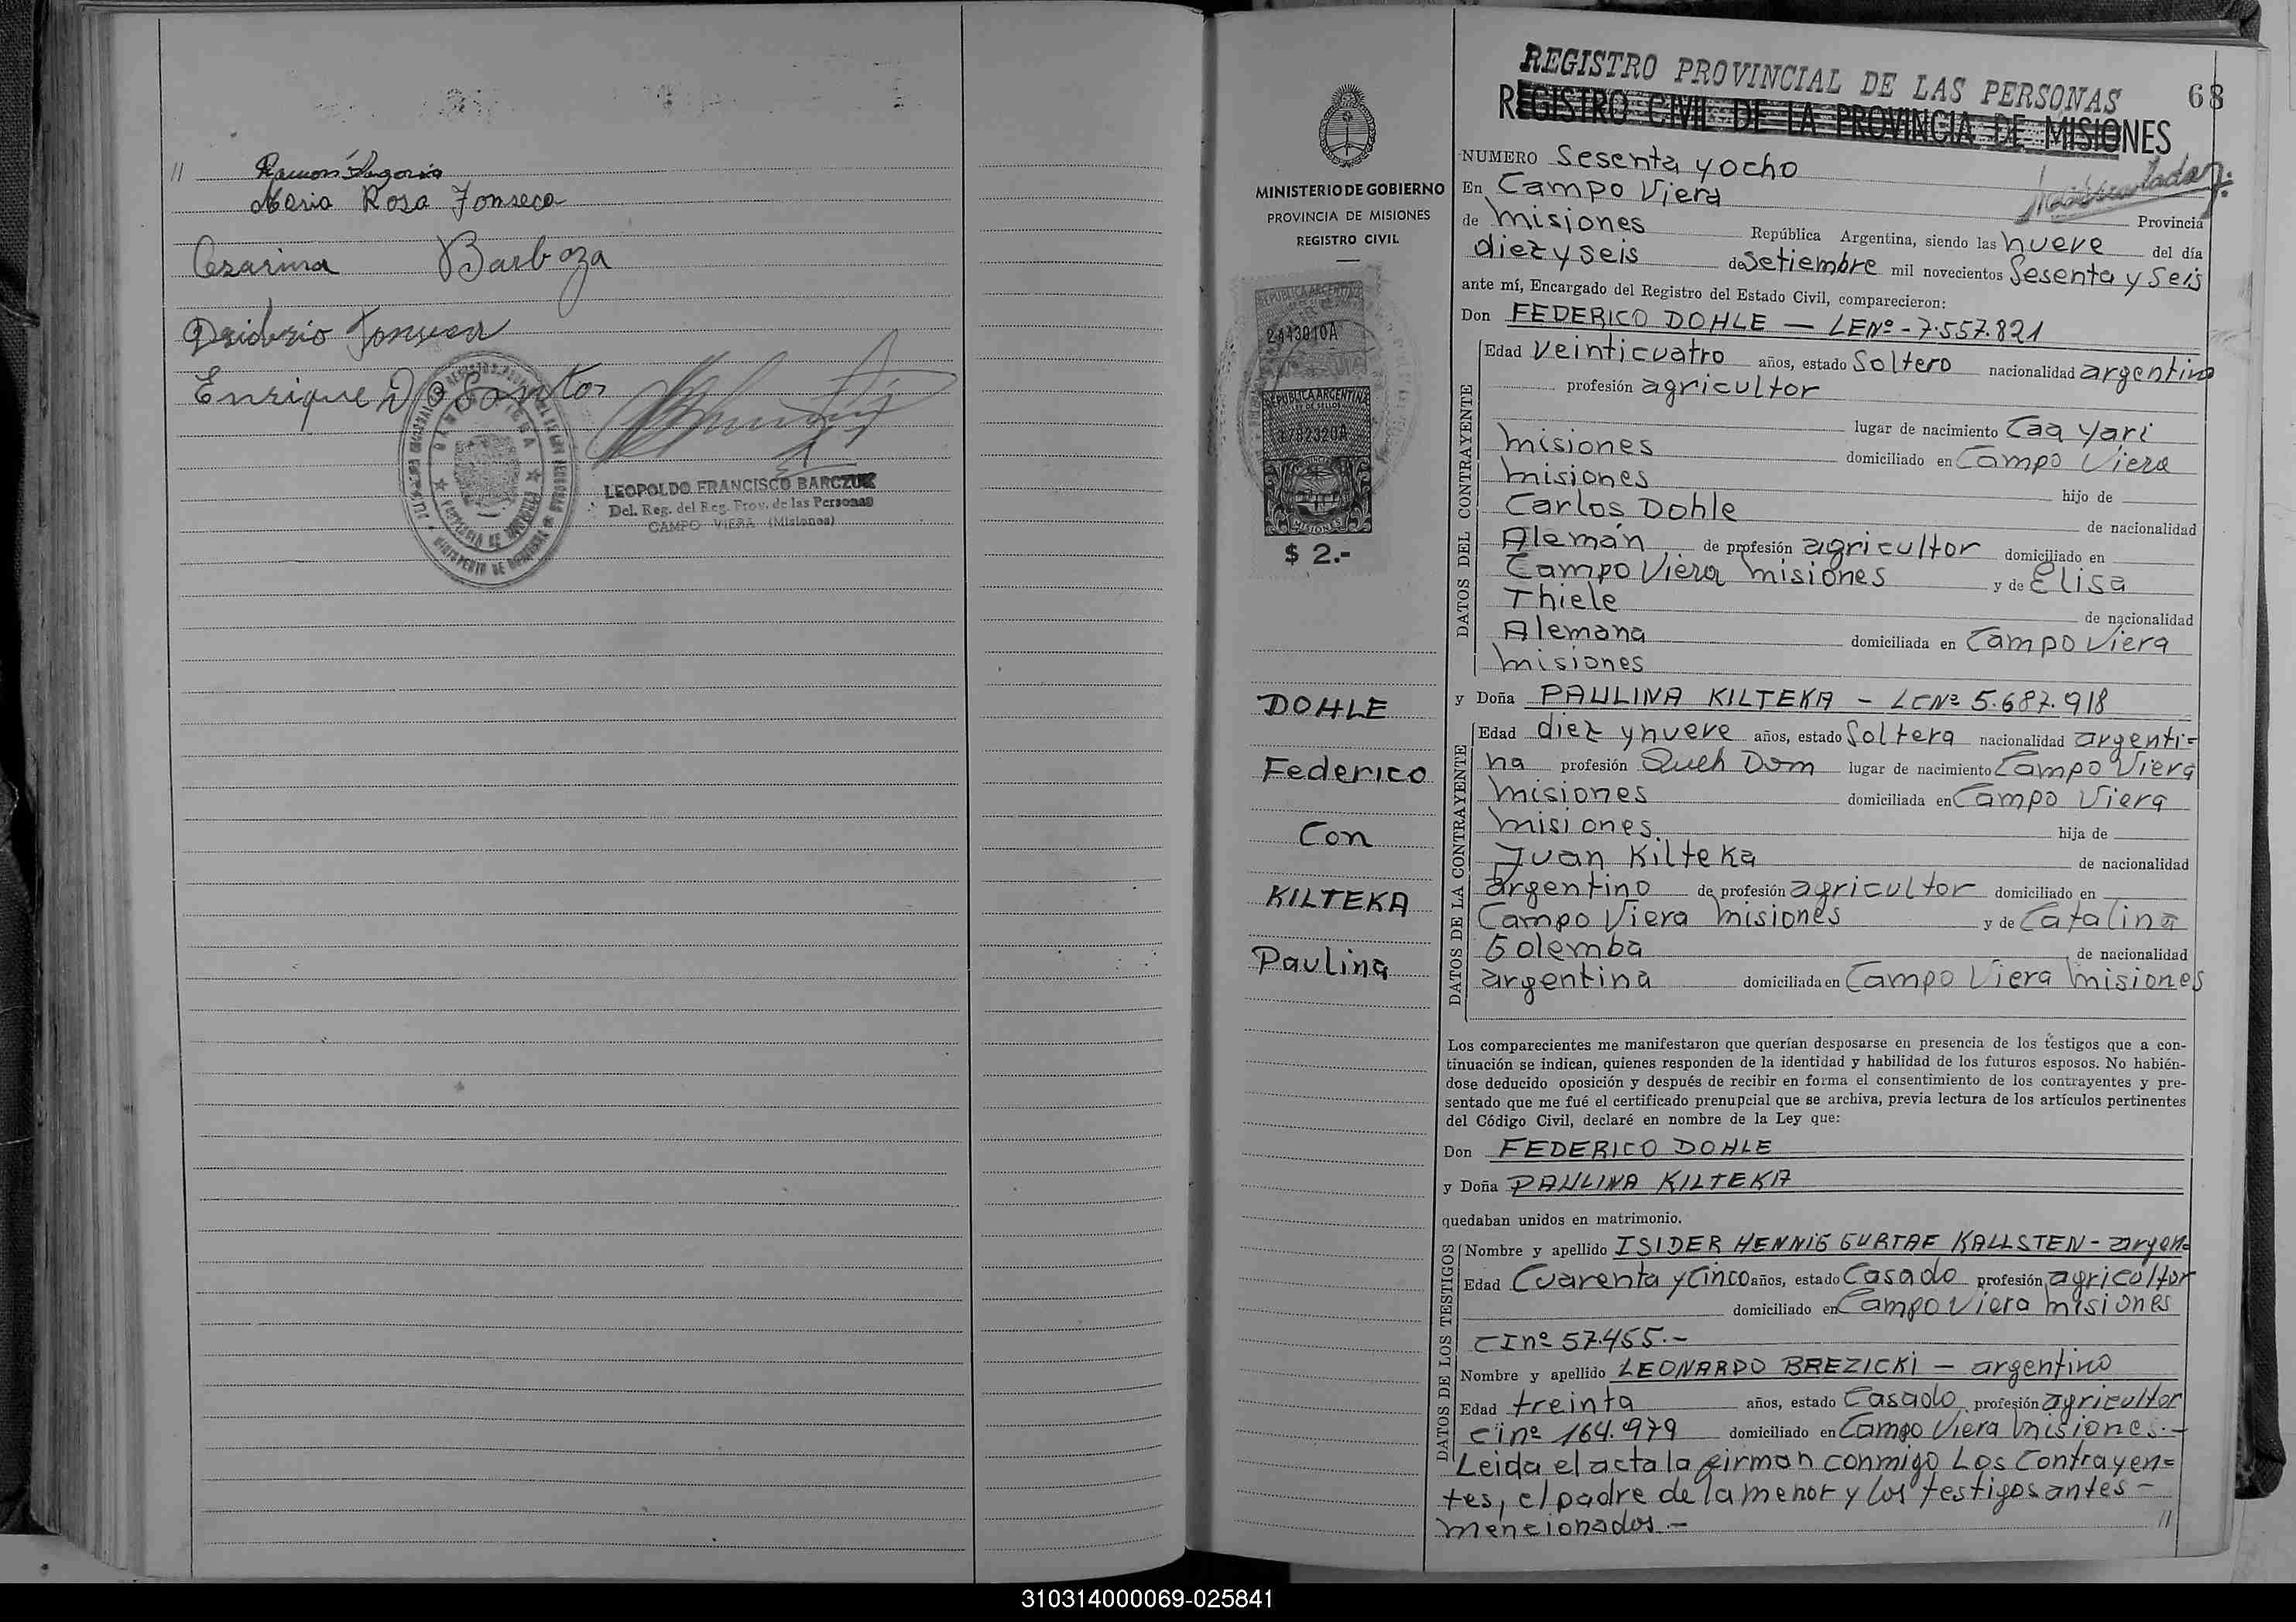 // Ramón Segovia
Maria Rosa Fonseca
Cezarina Barboza
Desiderio Fonseca
Enrique Do Santos
LEOPOLDO FRANCISCO BARCZUK
Del. Reg. del Reg. Prov. de las Personas
CAMPO VIERA (Misiones)
REGISTRO PROVINCIAL DE LAS PERSONAS
68
REGISTRO CIVIL DE LA PROVINCIA DE MISIONES
MINISTERIO DE GOBIERNO
PROVINCIA DE MISIONES
REGISTRO CIVIL
REPUBLICA ARGENTINA
2443010A
REPUBLICA ARGENTINA
LEY DE SELLOS
1782320A
MISIONES
$ 2.-
DOHLE
Federico
Con
KILTEKA
Paulina
NUMERO Sesenta y ocho
En Campo Viera
de Misiones Provincia
República Argentina, siendo las nueve del día
diez y seis de Setiembre mil novecientos Sesenta y Seis
ante mí, Encargado del Registro del Estado Civil, comparecieron:
Don FEDERICO DOHLE — LENº - 7.557.821
DATOS DEL CONTRAYENTE
Edad Veinticuatro años, estado Soltero nacionalidad argentino
profesión agricultor
lugar de nacimiento Caa Yari
Misiones domiciliado en Campo Viera
Misiones hijo de
Carlos Dohle de nacionalidad
Alemán de profesión agricultor domiciliado en
Campo Viera Misiones y de Elisa
Thiele de nacionalidad
Alemana domiciliada en Campo Viera
Misiones
y Doña PAULINA KILTEKA - LCNº 5.687.918
DATOS DE LA CONTRAYENTE
Edad diez y nueve años, estado Soltera nacionalidad argenti=
na profesión Queh Dom lugar de nacimiento Campo Viera
Misiones domiciliada en Campo Viera
Misiones hija de
Juan Kilteka de nacionalidad
argentino de profesión agricultor domiciliado en
Campo Viera Misiones y de Catalina
Golemba de nacionalidad
argentina domiciliada en Campo Viera Misiones
Los comparecientes me manifestaron que querían desposarse en presencia de los testigos que a con-
tinuación se indican, quienes responden de la identidad y habilidad de los futuros esposos. No habién-
dose deducido oposición y después de recibir en forma el consentimiento de los contrayentes y pre-
sentado que me fué el certificado prenupcial que se archiva, previa lectura de los artículos pertinentes
del Código Civil, declaré en nombre de la Ley que:
Don FEDERICO DOHLE
y Doña PAULINA KILTEKA
quedaban unidos en matrimonio.
DATOS DE LOS TESTIGOS
Nombre y apellido ISIDER HENNIG GURTAF KALLSTEN - argen=
Edad Cuarenta y Cinco años, estado Casado profesión agricultor
domiciliado en Campo Viera Misiones
CInº 57.455.-
Nombre y apellido LEONARDO BREZICKI — argentino
Edad treinta años, estado Casado profesión agricultor
cinº 164.979 domiciliado en Campo Viera Misiones.-
Leida el acta la firman conmigo Los Contrayen=
tes, el padre de la menor y los testigos antes -
mencionados.- //
310314000069-025841